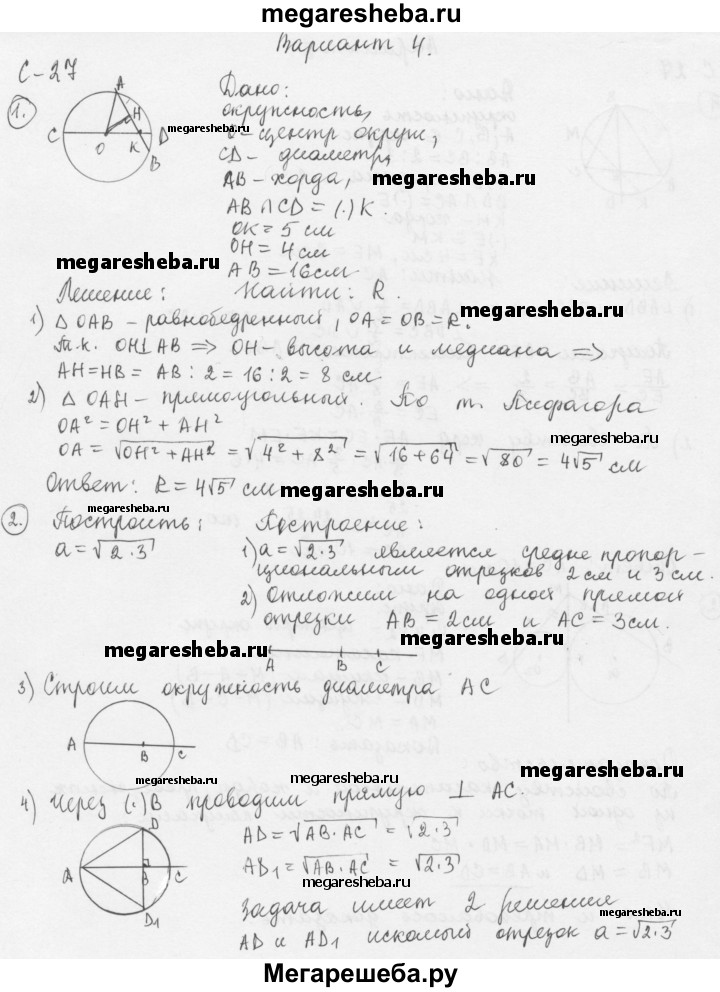 megaresheba.ru
Вариант 4.
С-27
1.
A
H
C
O
K
D
B
megaresheba.ru
Дано:
окружность,
О - центр окруж,
CD - диаметр,
AB - хорда,
megaresheba.ru
AB ∩ CD = (.) K.
OK = 5 см
OH = 4 см
AB = 16 см
megaresheba.ru
Решение: Найти: R.
1) △ OAB - равнобедренный, OA = OB = R.
Т.к. OH⊥AB => OH - высота и медиана =>
AH = HB = AB : 2 = 16 : 2 = 8 см.
megaresheba.ru
2) △ OAH - прямоугольный. По т. Пифагора
OA² = OH² + AH²
megaresheba.ru
OA = √OH² + AH² = √4² + 8² = √16 + 64 = √80 = 4√5 см
Ответ: R = 4√5 см
megaresheba.ru
megaresheba.ru
2. Построить: Построение:
a = √2·3 1) a = √2·3 является средне пропор-
циональным отрезков 2 см и 3 см.
2) Отложим на одной прямой
отрезки AB = 2 см и AC = 3 см.
megaresheba.ru
megaresheba.ru
A B C
3) Строим окружность диаметра AC
A B C
megaresheba.ru
megaresheba.ru
4) Через (.) B проводим прямую ⊥ AC.
megaresheba.ru
D
A B C
D₁
AD = √AB·AC = √2·3
AD₁ = √AB·AC = √2·3
megaresheba.ru
Задача имеет 2 решения
megaresheba.ru
AD и AD₁ искомый отрезок a = √2·3
megaresheba.ru
Мегарешеба.ру